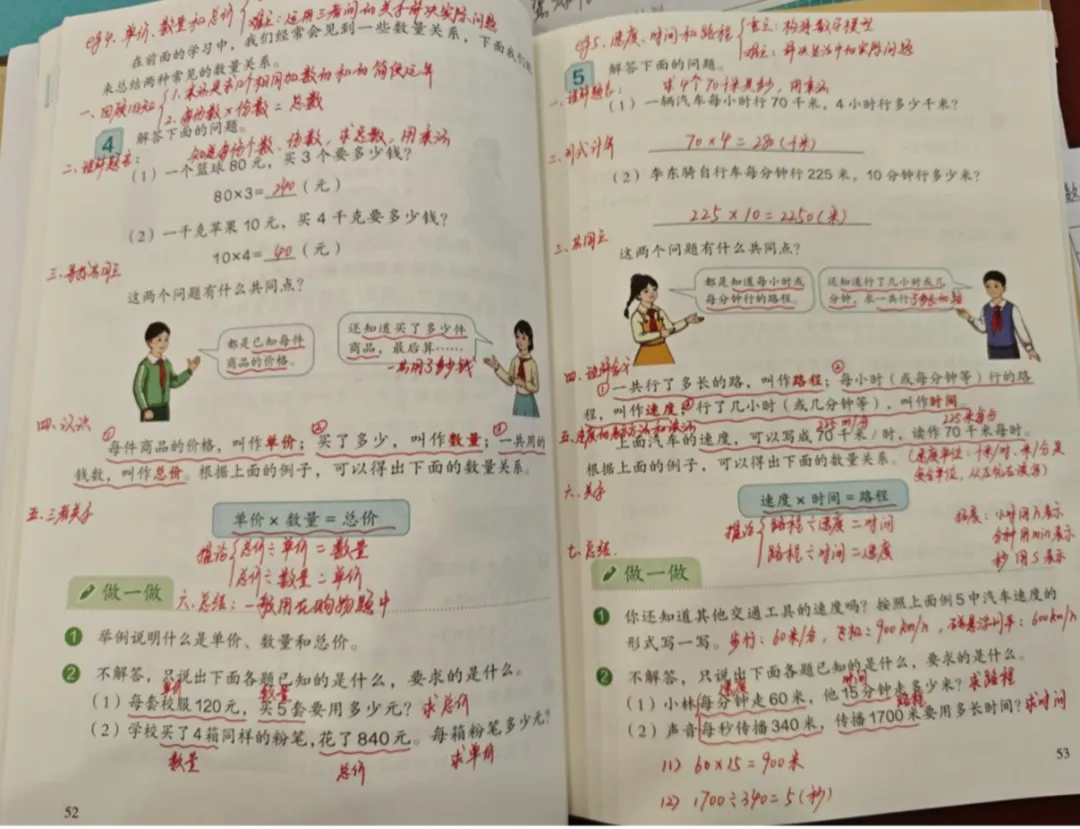 eg4. 单价、数量和总价
难主:运用三者间的关系解决实际问题
在前面的学习中,我们经常会见到一些数量关系,下面我们
来总结两种常见的数量关系。
一、回顾旧知
1.乘法是求几个相同加数的和的简便运算
2.每份数×份数=总数
4 解答下面的问题。
二、理解题意:知道每份个数、份数,求总数,用乘法
(1)一个篮球80元,买3个要多少钱?
80×3=240(元)
(2)一千克苹果10元,买4千克要多少钱?
10×4=40(元)
三、寻找共同点
这两个问题有什么共同点?
都是已知每件
商品的价格。
还知道买了多少件
商品,最后算……
一共用了多少钱
四、认识
① ② ③
每件商品的价格,叫作单价;买了多少,叫作数量;一共用的
钱数,叫作总价。根据上面的例子,可以得出下面的数量关系。
五、三者关系
单价×数量=总价
推论
总价÷单价=数量
总价÷数量=单价
做一做
六、总结:一般用在购物题中
1 举例说明什么是单价、数量和总价。
2 不解答,只说出下面各题已知的是什么,要求的是什么。
单价 数量
(1)每套校服120元,买5套要用多少元?求总价
(2)学校买了4箱同样的粉笔,花了840元。每箱粉笔多少元?
数量 总价 求单价
52
eg5. 速度、时间和路程
重点:构建数学模型
难点:解决生活中的实际问题
5 解答下面的问题。
一、理解题意:求4个70千米是多少,用乘法
(1)一辆汽车每小时行70千米,4小时行多少千米?
二、列式计算 70×4=280(千米)
(2)李东骑自行车每分钟行225米,10分钟行多少米?
225×10=2250(米)
三、共同点
这两个问题有什么共同点?
都是知道每小时或
每分钟行的路程。
还知道行了几小时或几
分钟,求一共行了多长的路
四、理解含义
① ② ③
一共行了多长的路,叫作路程;每小时(或每分钟等)行的路
程,叫作速度;行了几小时(或几分钟等),叫作时间。
五、速度的表示方法和读法 225米/分 225米每分
上面汽车的速度,可以写成70千米/时,读作70千米每时。
根据上面的例子,可以得出下面的数量关系。
(速度单位:千米/时、米/分是
复合单位,从左往右读)
六、关系
速度×时间=路程
推论
路程÷速度=时间
路程÷时间=速度
拓展:小时用h表示
分钟用min表示
秒用s表示
七、总结
做一做
1 你还知道其他交通工具的速度吗?按照上面例5中汽车速度的
形式写一写。步行:60米/分,飞机:900km/h,磁悬浮列车:600km/h
2 不解答,只说出下面各题已知的是什么,要求的是什么。
速度 时间
(1)小林每分钟走60米,他15分钟走多少米?求路程
路程
(2)声音每秒传播340米,传播1700米要用多长时间?求时间
(1) 60×15=900米
(2) 1700÷340=5(秒)
53